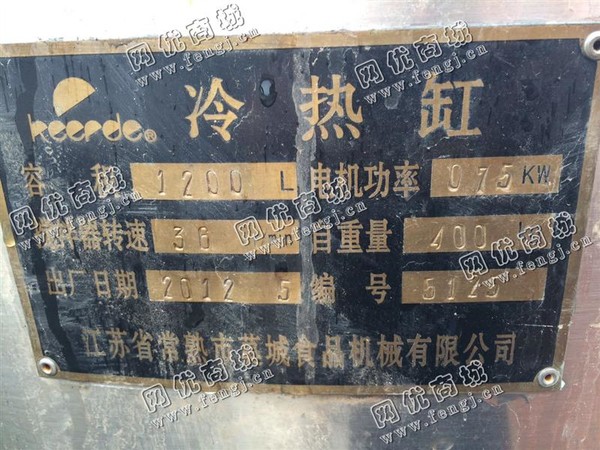 keerde®
冷热缸
容积 1200 L 电机功率 075 KW
器转速 36 自重量 400
出厂日期 2012 5 编号 5125
江苏省常熟市 城食品机械有限公司
网优商城
www.fengj.cn
网优商城
www.fengj.cn
网优商城
www.fengj.cn
网优商城
www.fengj.cn
网优商城
www.fengj.cn